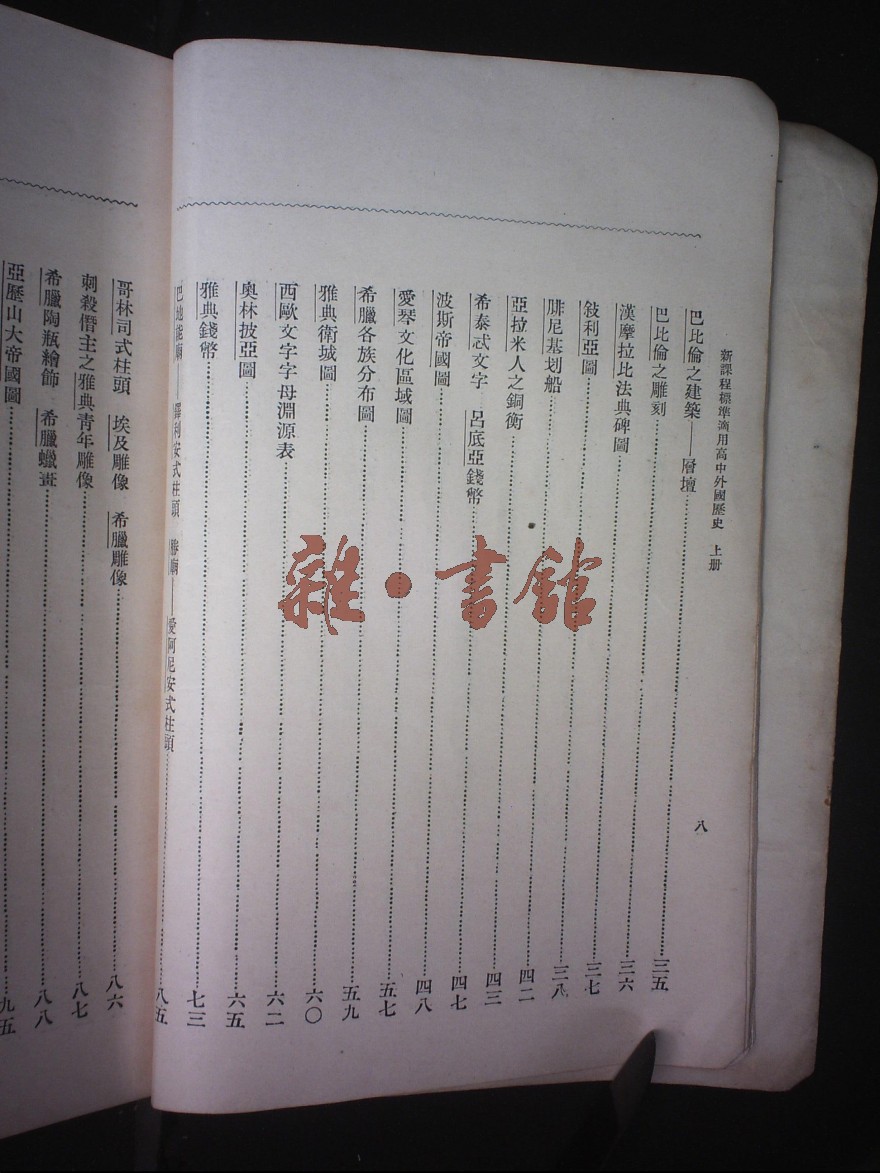 新課程標準適用高中外國歷史 上册
八
巴比倫之建築——層壇……三五
巴比倫之雕刻……三六
漢摩拉比法典碑圖……三七
敍利亞圖……三八
腓尼基划船……四二
亞拉米人之銅衡……四三
希泰忒文字 呂底亞錢幣……四七
波斯帝國圖……四八
愛琴文化區域圖……五七
希臘各族分布圖……五九
雅典衛城圖……六〇
西歐文字字母淵源表……六二
奧林披亞圖……六五
雅典錢幣……七三
巴地能廟——安式柱頭 廟——愛阿尼安式柱頭……八五
哥林司式柱頭 埃及雕像 希臘雕像……八六
刺殺僭主之雅典青年雕像……八七
希臘陶瓶繪飾 希臘蠟畫……八八
亞歷山大帝國圖……九五
雜·書館